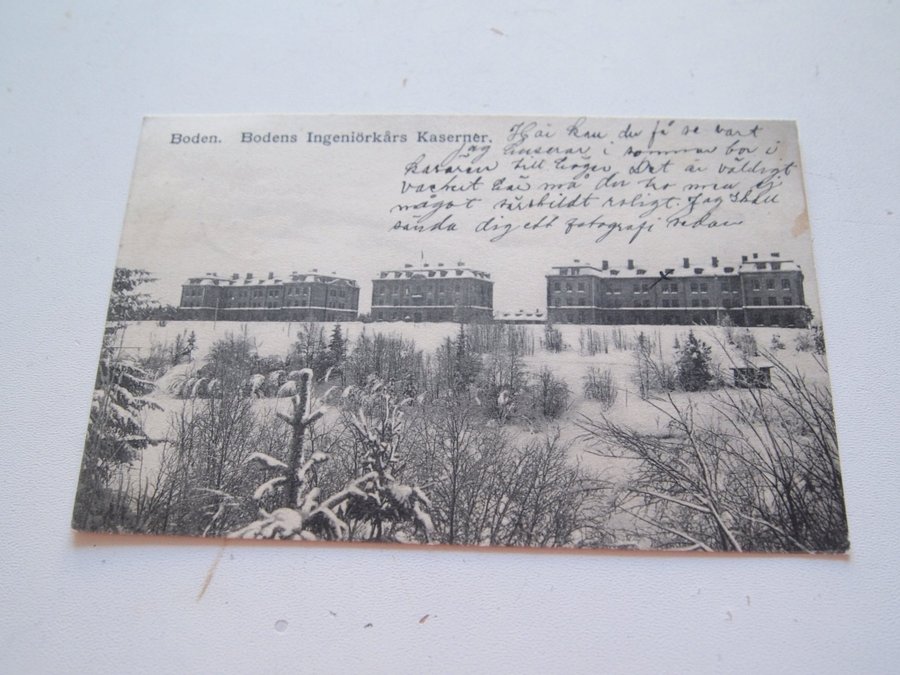 Boden. Bodens Ingeniörkårs Kaserner.
Här kan du få se vart
jag huserar i sommar bor i
kasären till höger Det är väldigt
vackert här må du tro men ej
något särsbildt roligt. Jag skall
sända dig ett fotografi sedan